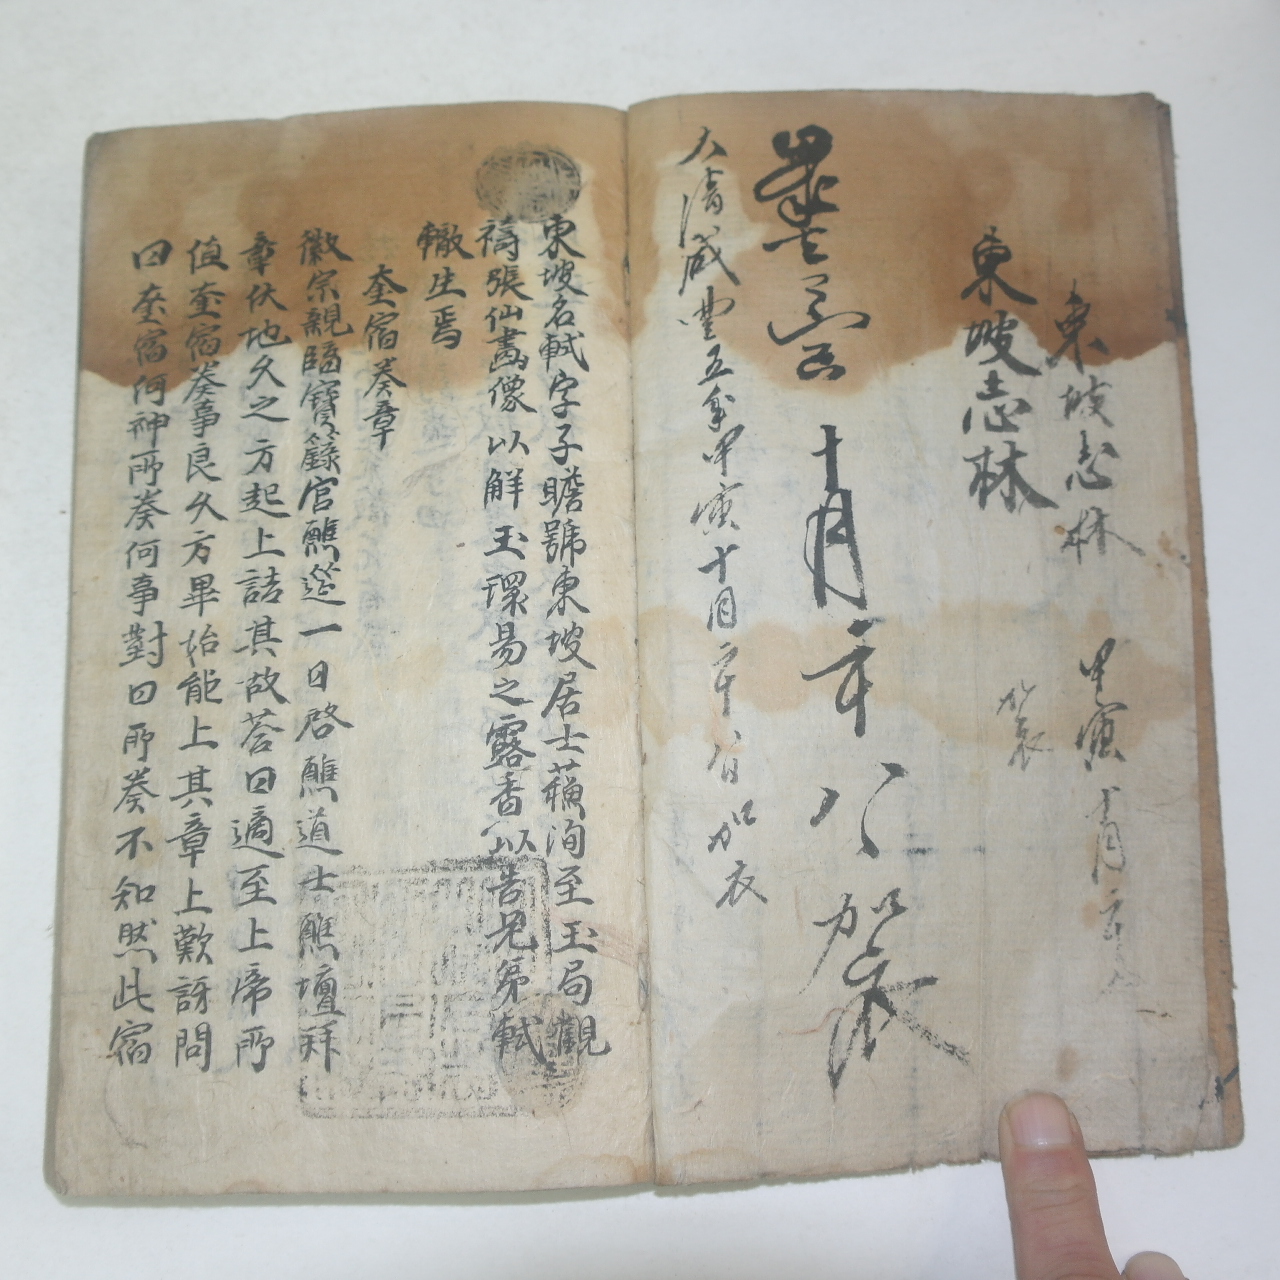 東坡志林 甲寅十月
東坡志林
加衣
十月二十八 加衣
大清咸豊五年甲寅十月二十八日加衣
東坡名軾字子瞻號東坡居士蘓洵至玉局觀
禱張仙畵像以解玉環易之露香以告兄弟軾
轍生焉
奎宿奏章
徽宗親臨寶籙宮醮筵一日啓醮道士醮壇拜
章伏地久之方起上詰其故荅曰適至上帝所
值奎宿奏事良久方畢始能上其章上歎訝問
曰奎宿何神所奏何事對曰所奏不知然此宿